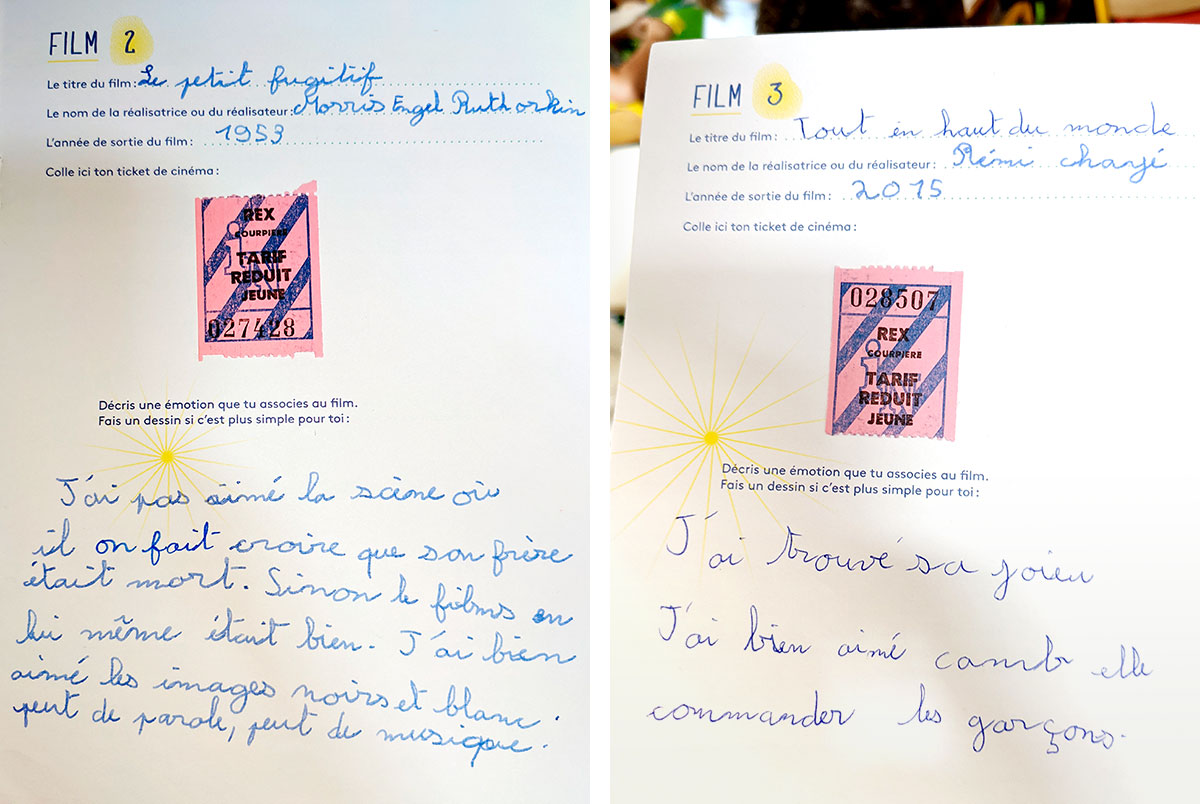 FILM 2
Le titre du film : Le petit fugitif
Le nom de la réalisatrice ou du réalisateur : Morris Engel Ruth orkin
L'année de sortie du film : 1953
Colle ici ton ticket de cinéma :
REX
COURPIERE
TARIF
REDUIT
JEUNE
027428
Décris une émotion que tu associes au film.
Fais un dessin si c'est plus simple pour toi :
J'ai pas aimé la scène où
il on fait croire que son frère
était mort. Sinon le films en
lui même était bien. J'ai bien
aimé les images noirs et blanc.
peut de parole, peut de musique.
FILM 3
Le titre du film : Tout en haut du monde
Le nom de la réalisatrice ou du réalisateur : Rémi chayé
L'année de sortie du film : 2015
Colle ici ton ticket de cinéma :
028507
REX
COURPIERE
TARIF
REDUIT
JEUNE
Décris une émotion que tu associes au film.
Fais un dessin si c'est plus simple pour toi :
J'ai trouvé sa joieu
J'ai bien aimé elle
commander les garçons.